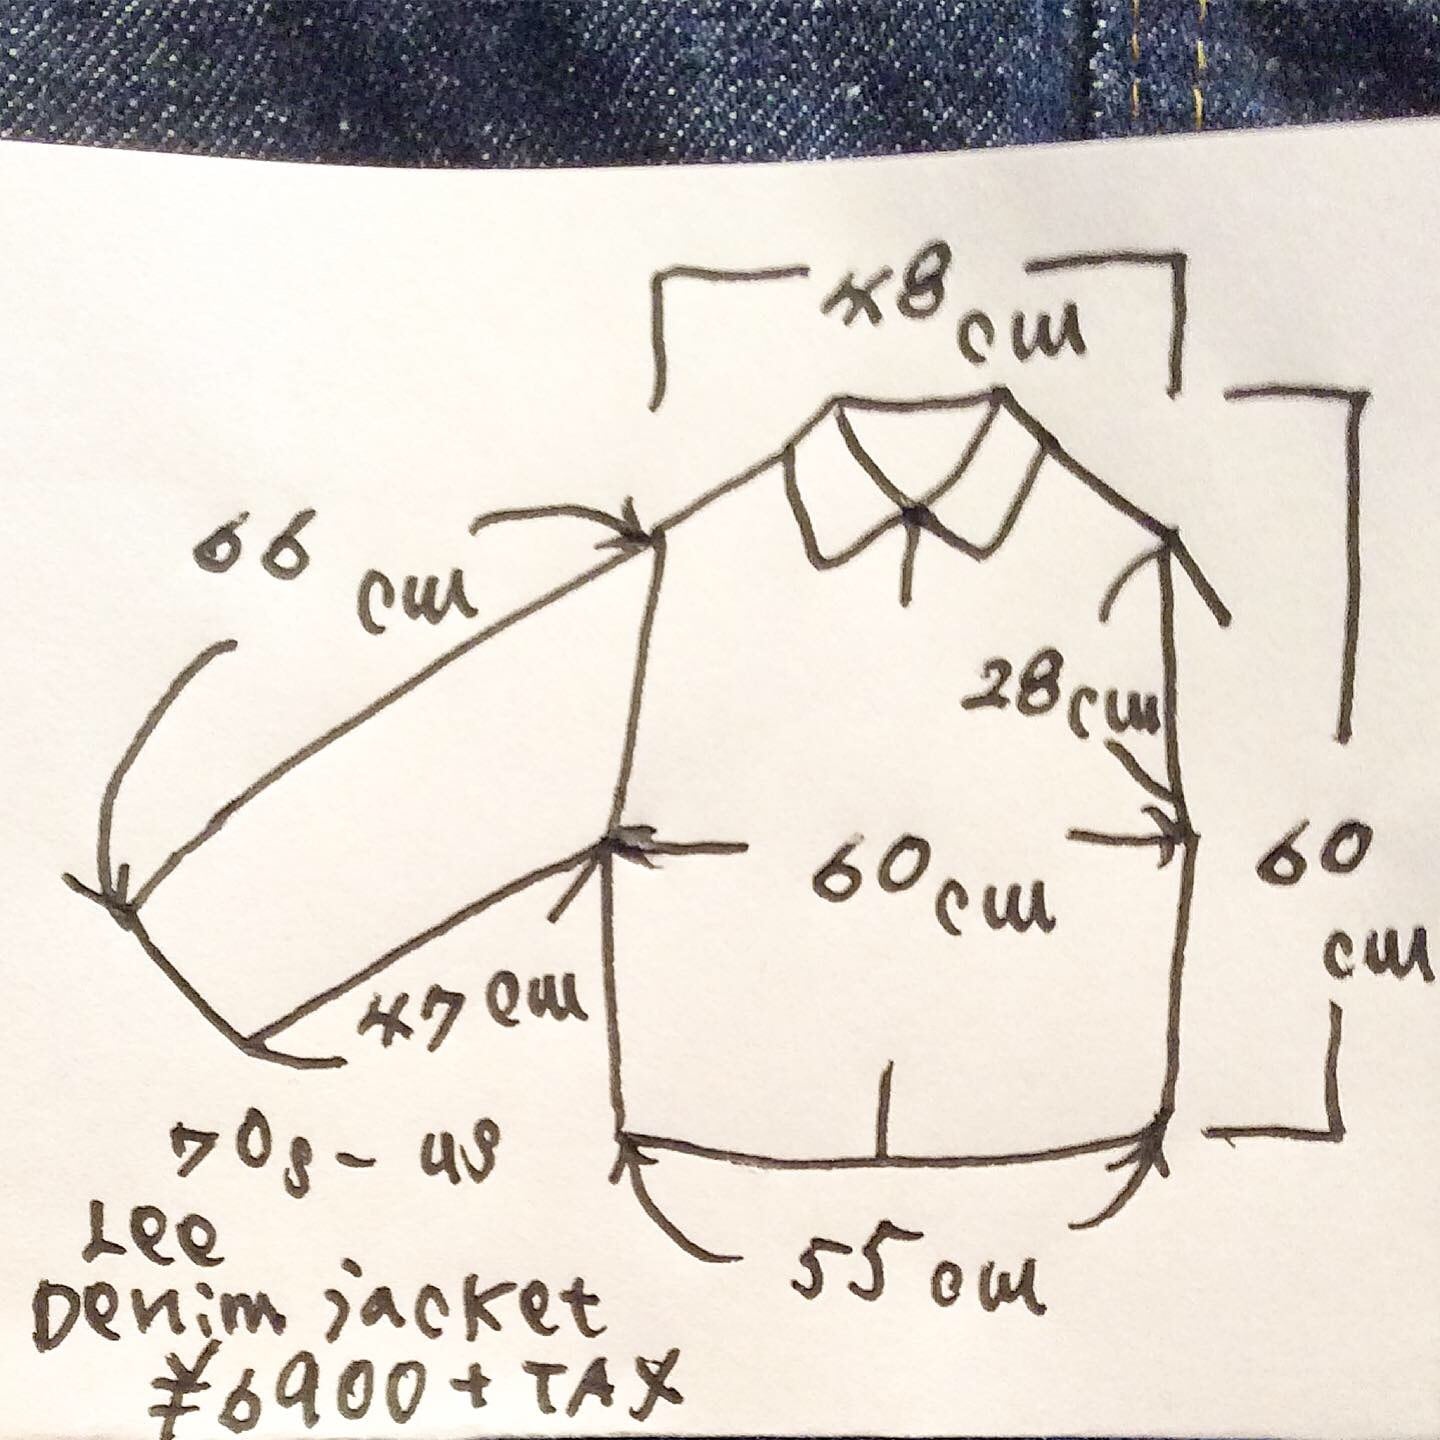 48cm
66cm
28cm
60cm
60cm
47cm
55cm
70s-us
Lee
Denim jacket
¥6900+TAX